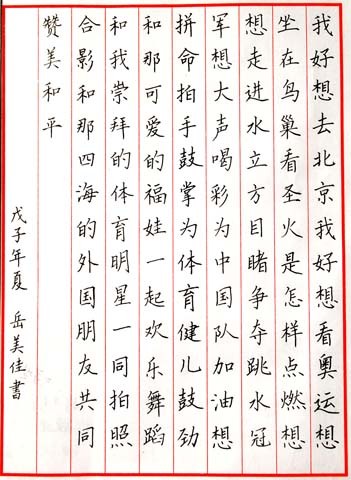 我好想去北京我好想看奥运想
坐在鸟巢看圣火是怎样点燃想
想走进水立方目睹争夺跳水冠
军想大声喝彩为中国队加油想
拼命拍手鼓掌为体育健儿鼓劲
和那可爱的福娃一起欢乐舞蹈
和我崇拜的体育明星一同拍照
合影和那四海的外国朋友共同
赞美和平
戊子年夏 岳美佳书